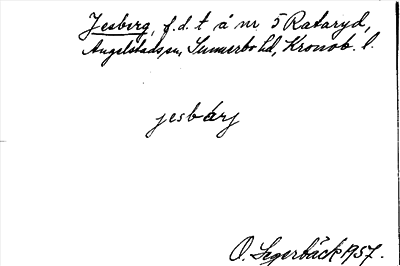 Jesberg, f.d. t å nr 5 Rataryd,
Angelstads sn, Sunnerbo hd, Kronob. l.
jesbärj
O. Segerbäck 1957.